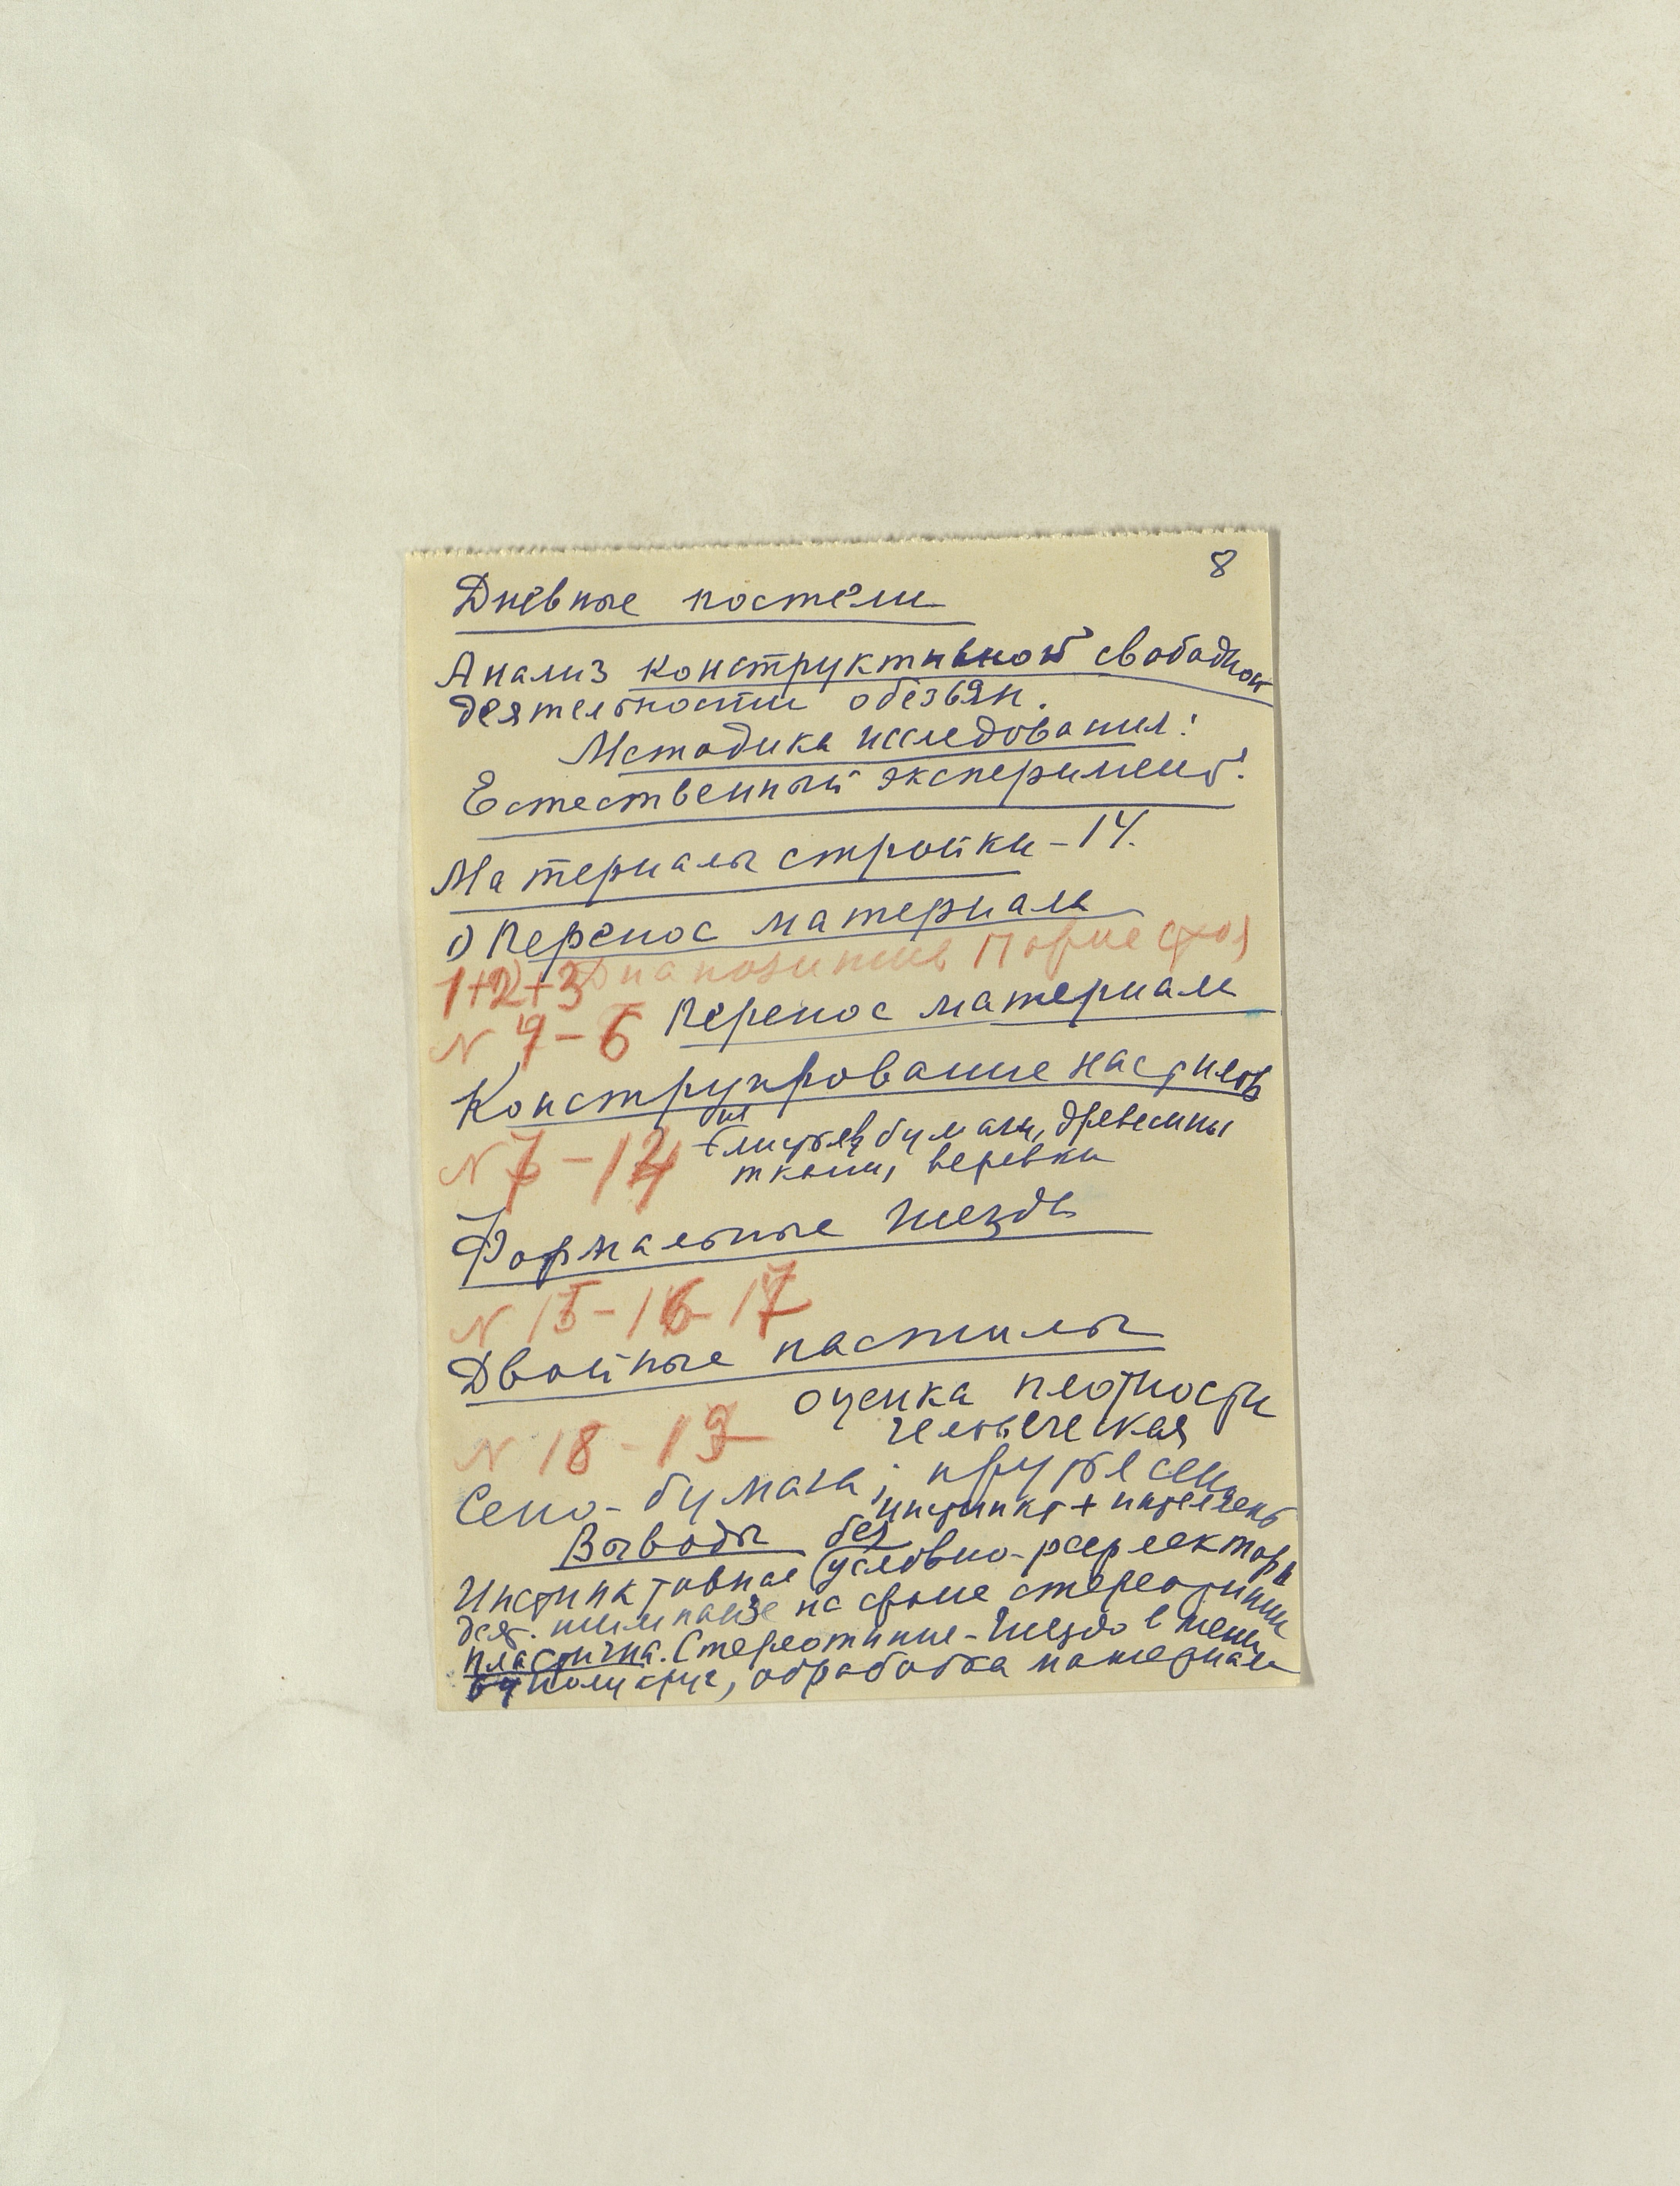 8
Дневные постели
Анализ конструктивной свободной
деятельности обезьян.
Методика исследования:
Естественный эксперимент.
Материалы стройки – 14.
1) Перенос материала
1+2+3 Диапозитив Парис
N 4 – 6 Перенос материала
Конструирование настилов
N 7 – 14 + листьев бумаги, древесины
ткани, веревки
Формальные гнезда
N 15 – 16 – 17
Двойные настилы
оценка плотности
N 18 – 19 человеческая
Сено – бумага; прутья сено
инстинкт + интеллект
Выводы без
Инстинктивное (условно-рефлекторн
деят. шимпанзе на фоне стереотипии
пластична. Стереотипия – гнездо в
полукруг, обработка материала